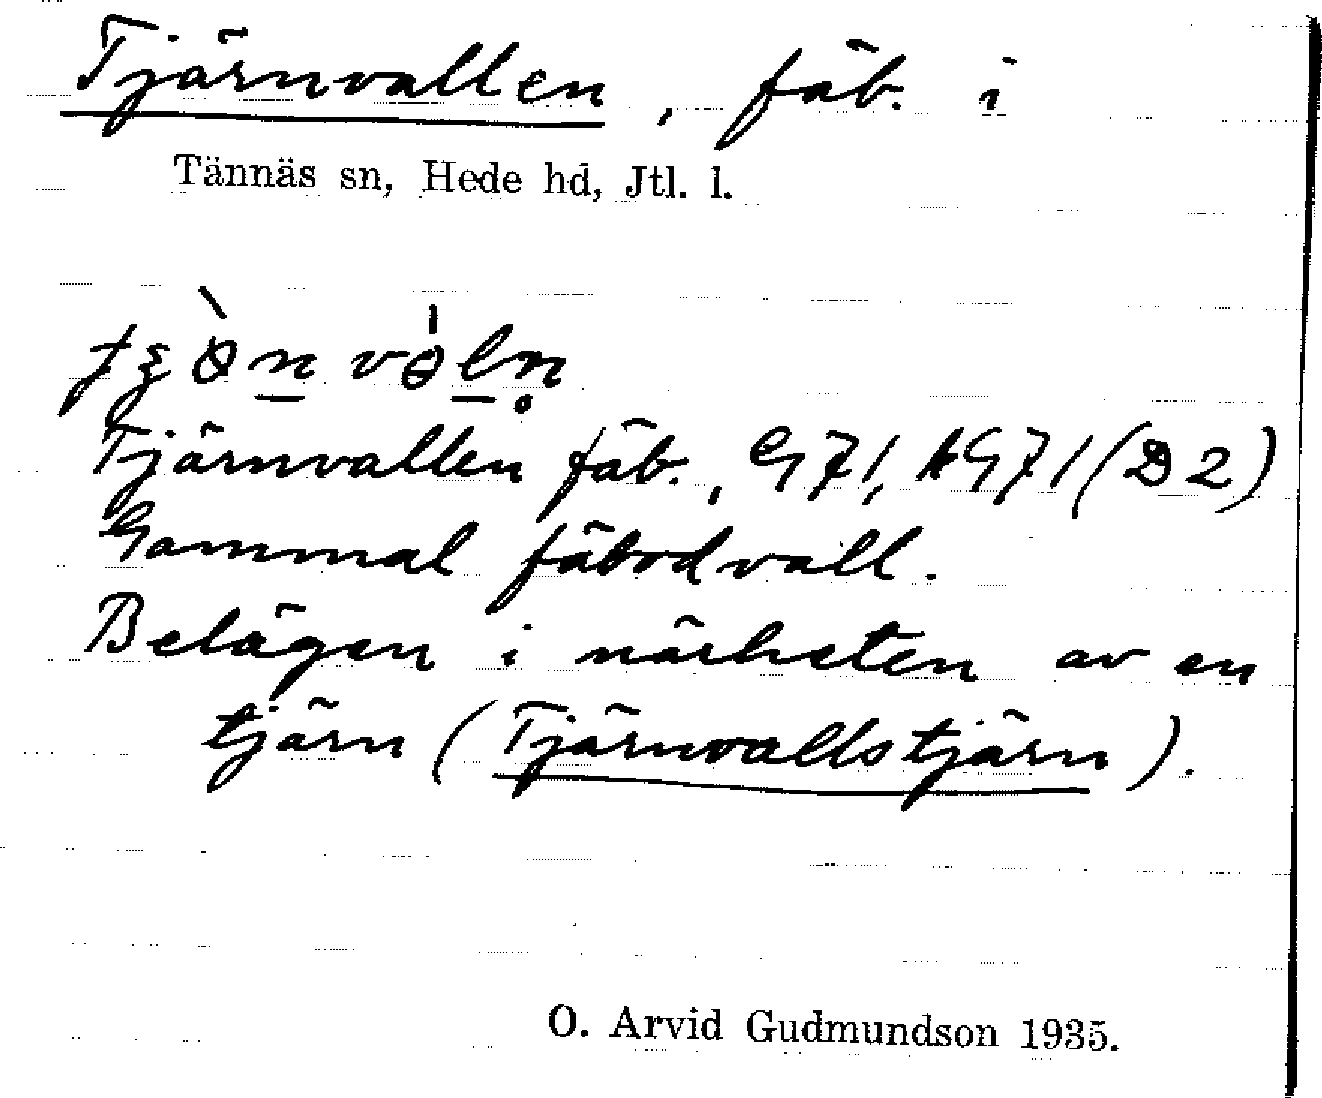 Tjärnvallen, fäb. i
Tännäs sn, Hede hd, Jtl. l.
Tjärnvallen fäb., G71, AG71 (D2)
Gammal fäbodvall.
Belägen i närheten av en
tjärn (Tjärnvallstjärn).
O. Arvid Gudmundson 1935.